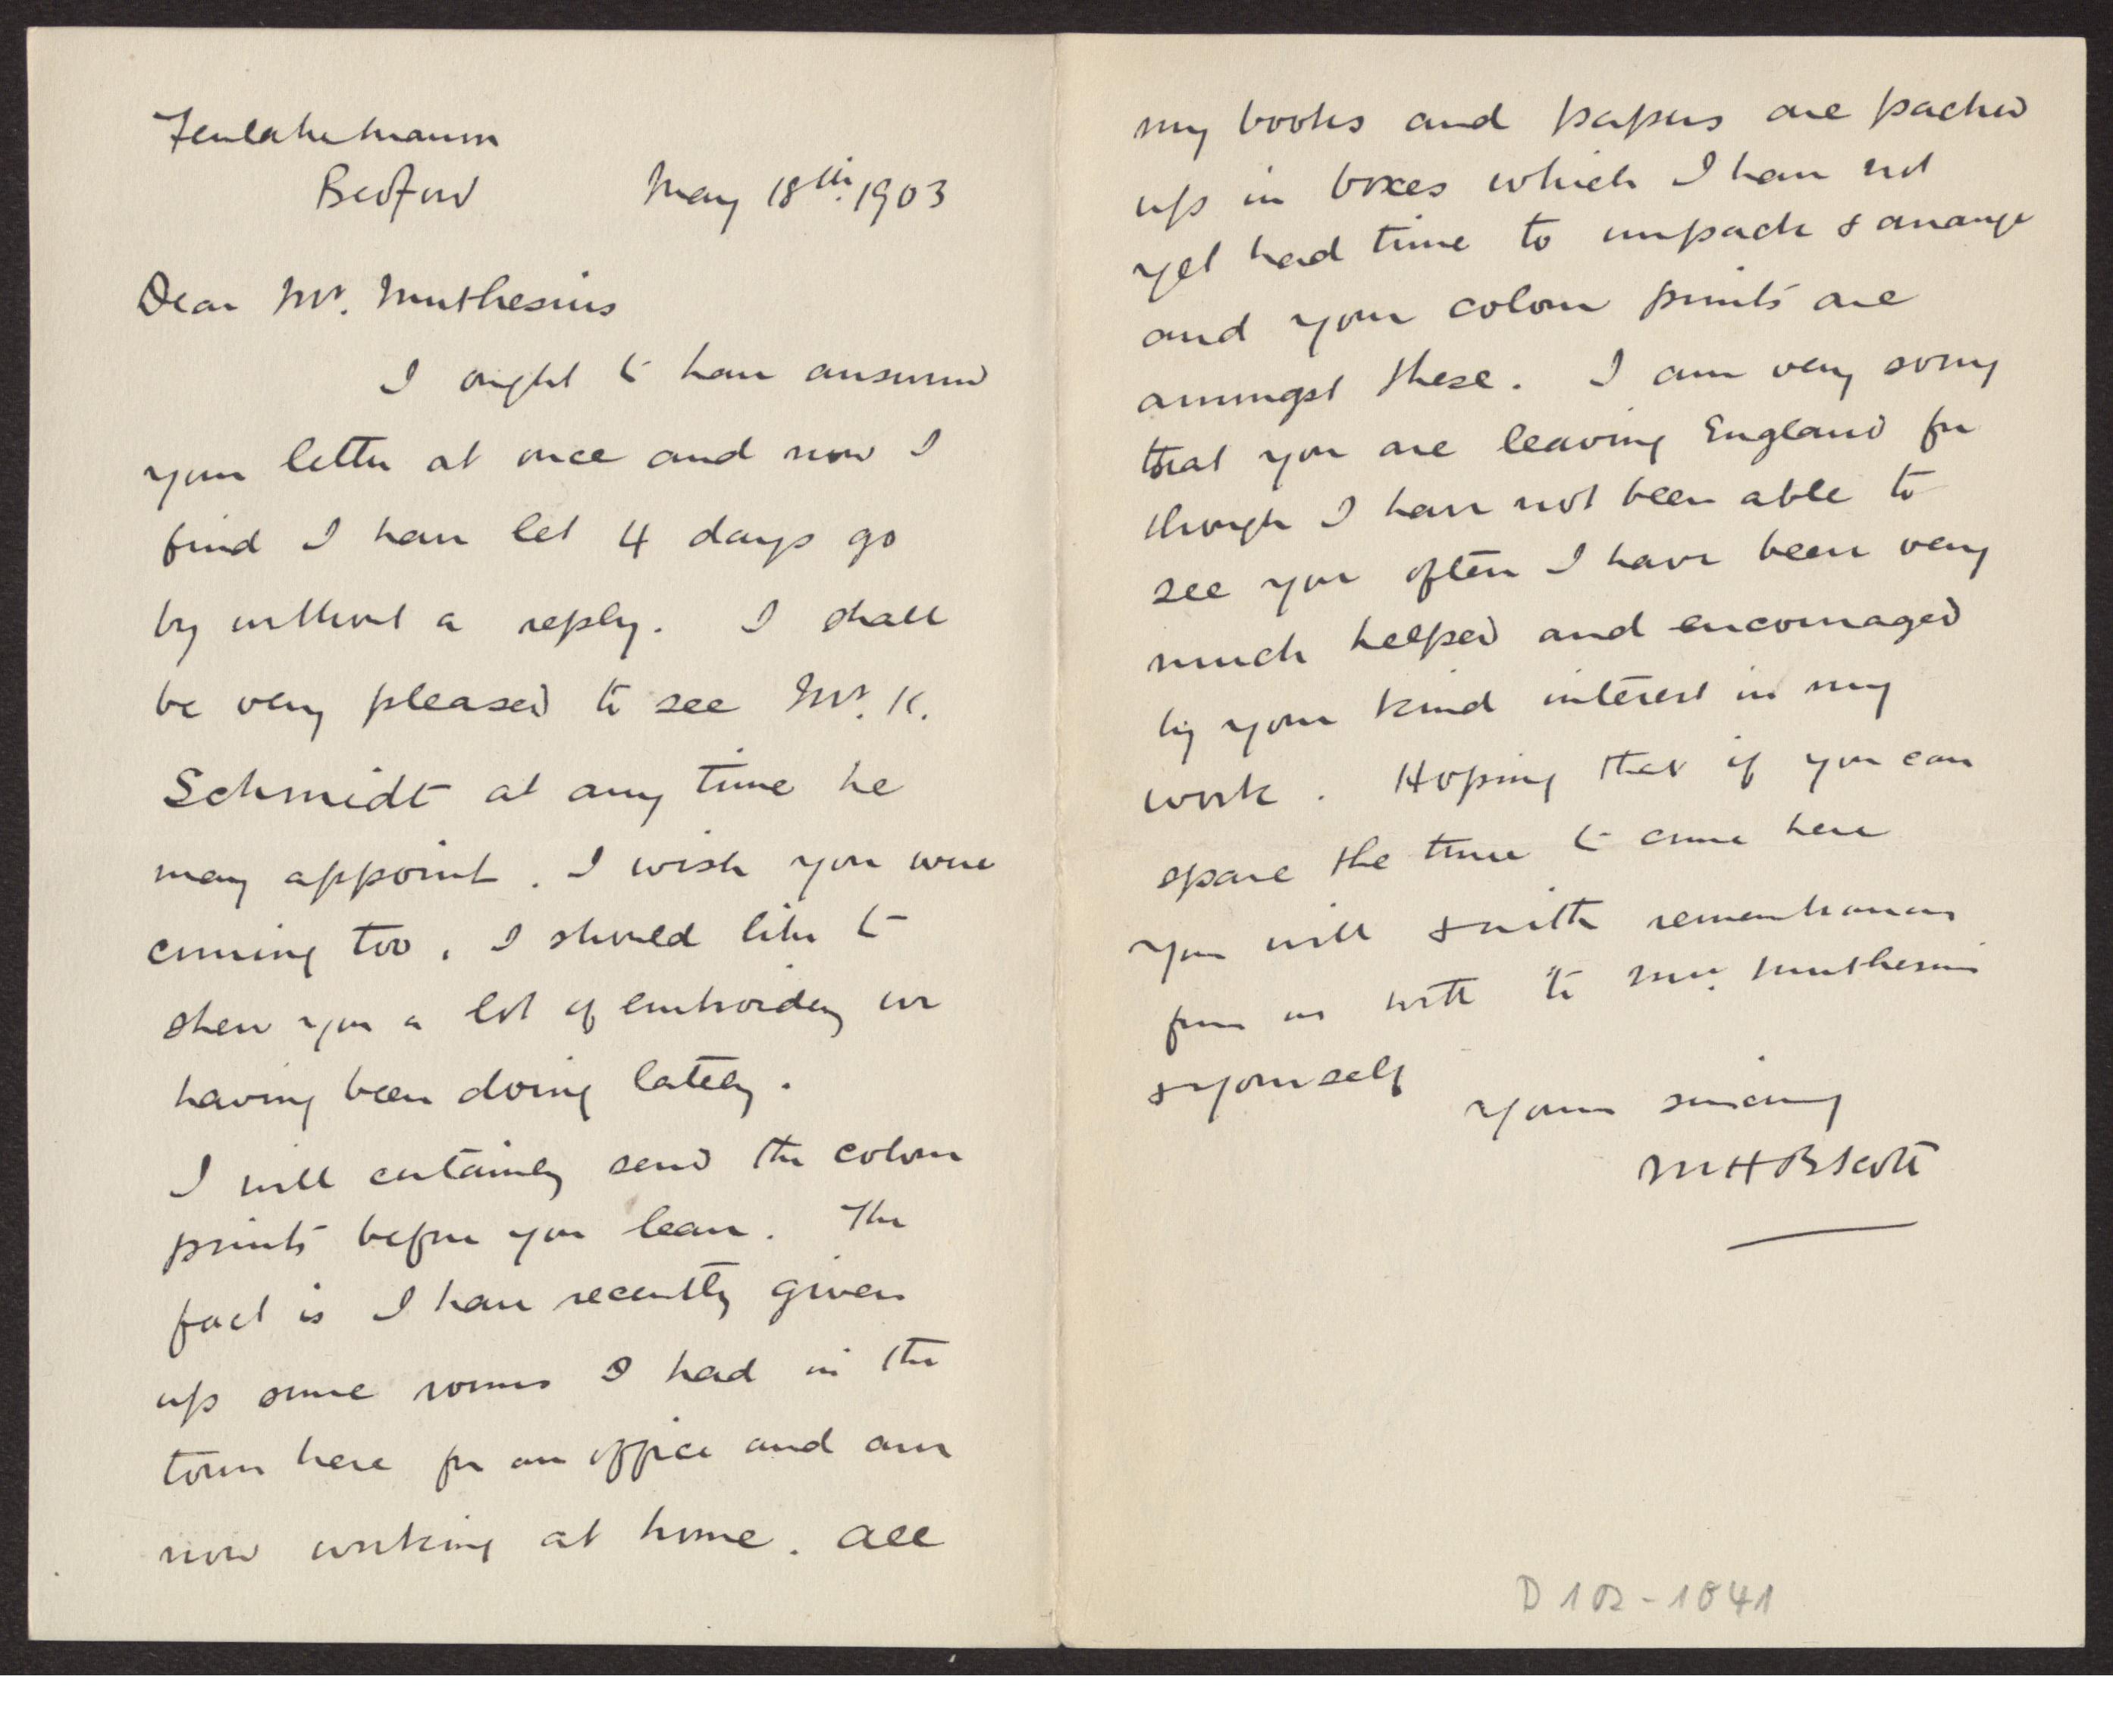 Fenlake Manor
Bedford May 18th. 1903
Dear Mr. Muthesius
I ought to have answered
your letter at once and now I
find I have let 4 days go
by without a reply. I shall
be very pleased to see Mr. K.
Schmidt at any time he
may appoint. I wish you were
coming too. I should like to
shew you a lot of embroidery we
having been doing lately.
I will certainly send the colour
prints before you leave. The
fact is I have recently given
up some rooms I had in the
town here for an office and am
now working at home. All
my books and papers are packed
up in boxes which I have not
yet had time to unpack & arrange
and your colour prints are
amongst these. I am very sorry
that you are leaving England for
though I have not been able to
see you often I have been very
much helped and encouraged
by your kind interest in my
work. Hoping that if you can
spare the time to come here
you will & with remembrances
from us both to Mrs. Muthesius
& yourself
Yours sincerely
M H B Scott
D 102-1841